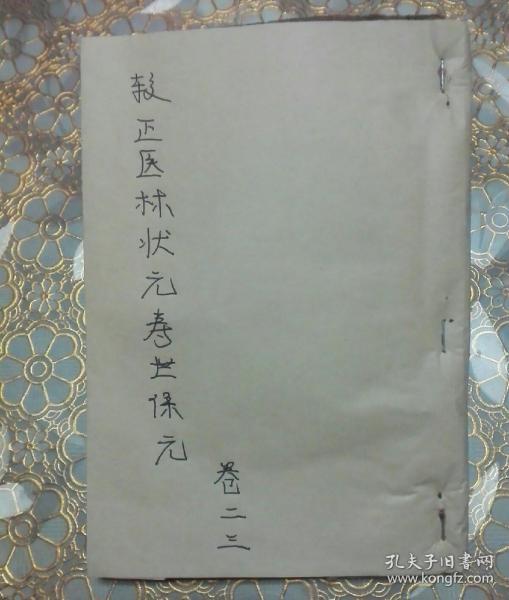 较正医林状元寿世保元
卷二三
孔夫子旧书网
www.kongfz.com